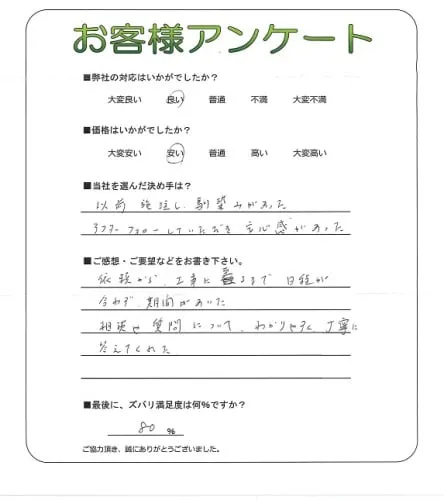 お客様アンケート
■弊社の対応はいかがでしたか?
大変良い 良い 普通 不満 大変不満
■価格はいかがでしたか?
大変安い 安い 普通 高い 大変高い
■当社を選んだ決め手は?
以前 施注し、馴染みがあった
アフターフォローしていただき 安心感があった
■ご感想・ご要望などをお書き下さい。
依頼から、工事に至るまで 日程が
合わず 期間があいた
相談や質問について、わかりやすく、丁寧に
答えてくれた
■最後に、ズバリ満足度は何%ですか?
80 %
ご協力頂き、誠にありがとうございました。